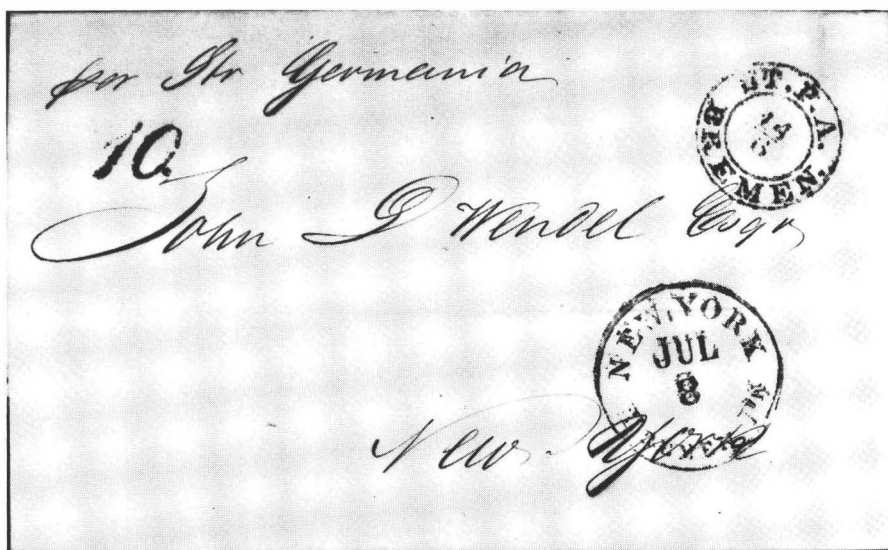 per Str Germania
ST. P. A.
BREMEN.
10.
John D Wendel Esqr
NEW YORK
JUL
8
New York